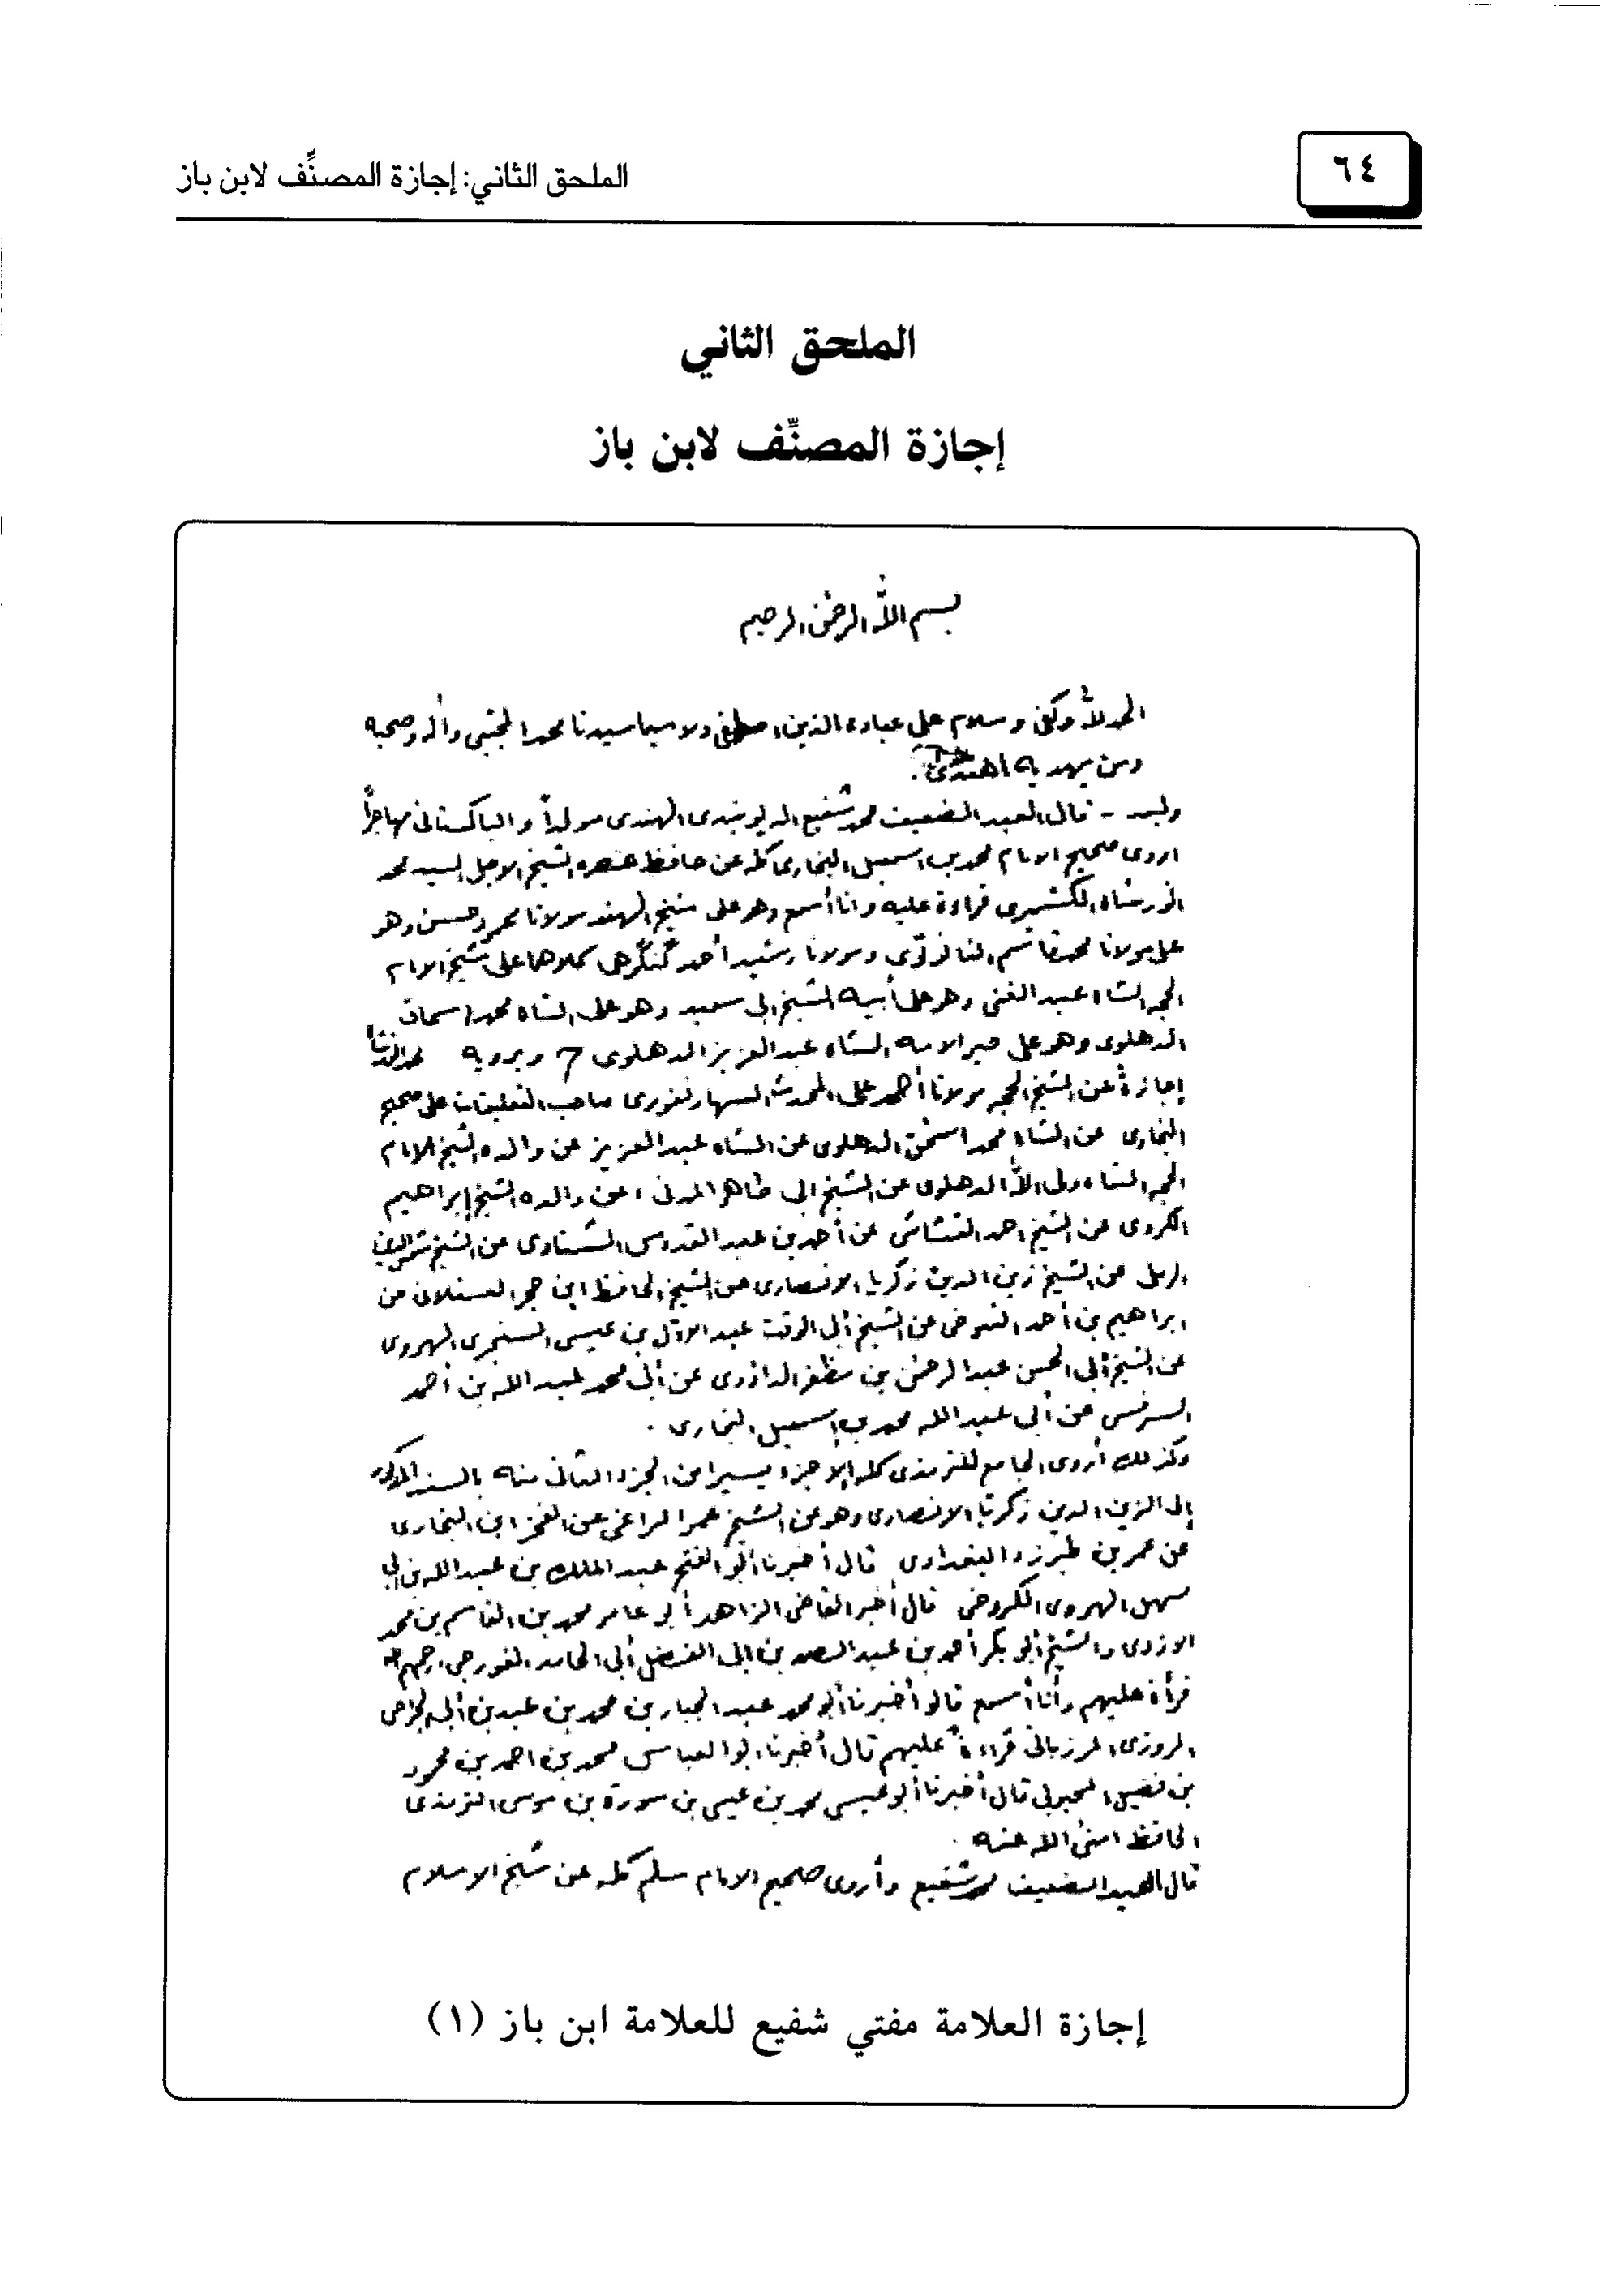 ٦٤
الملحق الثاني: إجازة المصنِّف لابن باز
الملحق الثاني
إجازة المصنِّف لابن باز
بسم الله الرحمن الرحيم
الحمد لله وكفى وسلام على عباده الذين اصطفى ولا سيما سيدنا محمد المجتبى وآله وصحبه
ومن بهديه اهتدى.
وبعد - قال العبد الضعيف محمد شفيع الديوبندى الهندى مولداً والباكستانى مهاجراً
اروى صحيح الامام محمد بن اسمعيل البخارى كله عن حافظ عصره الشيخ الاجل السيد محمد
انور شاه الكشميرى قراءة عليه وانا أسمع وهو على شيخ الهند مولانا محمود حسن وهو
على مولانا محمد قاسم النانوتوى ومولانا رشيد أحمد گنگوهى كلاهما على الشيخ الامام
الحجه الشاه عبد الغنى وهو على أبيه الشيخ ابى سعيد وهو على الشاه محمد اسحاق
الدهلوى وهو على حبر الامه الشاه عبد العزيز الدهلوى ح ويرويه
إجازة عن الشيخ الحجه مولانا أحمد على المحدث السهارنفورى صاحب التعليقات على صحيح
البخارى عن الشاه محمد اسحق الدهلوى عن الشاه عبد العزيز عن والده الشيخ الامام
الحجه الشاه ولى الله الدهلوى عن الشيخ ابى طاهر المدنى عن والده الشيخ إبراهيم
الكردى عن الشيخ احمد القشاشى عن أحمد بن عبد القدوس الشناوى عن الشيخ شمس الدين
الرملى عن الشيخ زين الدين زكريا الانصارى عن الشيخ الحافظ ابن حجر العسقلانى عن
ابراهيم بن أحمد التنوخى عن الشيخ أبى الوقت عبد الاول بن عيسى السنجرى الهروى
عن الشيخ أبى الحسن عبد الرحمن بن مظفر الداؤدى عن أبى محمد عبد الله بن أحمد
السرخسى عن أبى عبد الله محمد بن إسمعيل البخارى.
وكذلك أروى الجامع للترمذى كله إلا جزء يسيرا من الجزء الثانى منه بالسند المذكور
إلى الزين الدين زكريا الانصارى وهو عن الشيخ عمر المراغى عن الفخر ابن البخارى
عن عمر بن طبرزد البغدادى قال أخبرنا أبو الفتح عبد الملك بن عبد الله بن ابى
سهل الهروى الكروخى قال أخبر القاضى الزاهد أبو عامر محمد بن القاسم بن محمد
الازدى والشيخ أبو بكر أحمد بن عبد الصمد بن ابى الفضل أبى الحامد الغورجى رحمهم الله
قرأة عليهم وأنا أسمع قالو أخبرنا أبو محمد عبد الجبار بن محمد بن عبد بن أبى الجراحى
المروزى المرزبانى قراءة عليهم قال أخبرنا ابو العباس محمد بن احمد بن محمود
بن فضيل المحبوبى قال أخبرنا أبو عيسى محمد بن عيسى بن سورة بن موسى الترمذى
الحافظ عنه.
قال العبد الضعيف محمد شفيع وأروى صحيح الامام مسلم كله عن شيخ الاسلام
إجازة العلامة مفتي شفيع للعلامة ابن باز (١)